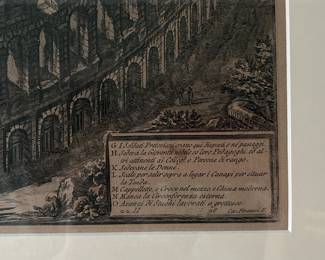 G I Soldati Pretoriani erano qui disposti e ne' passaggi
H. Sedeva la Gioventù nobile co' loro Pedagoghi, ed al
tri attinenti ai Collegi e Persone di rango.
K. Sedevano le Donne.
L. Scale per salir sopra a legar i Canapi per situar
la Tenda.
M. Cappellette, e Croce nel mezzo e Chiesa moderna.
N. Manca la Circonferenza esterna.
O Avanzi di Stuchi lavorati a grottesco.
Cav. Piranesi F.